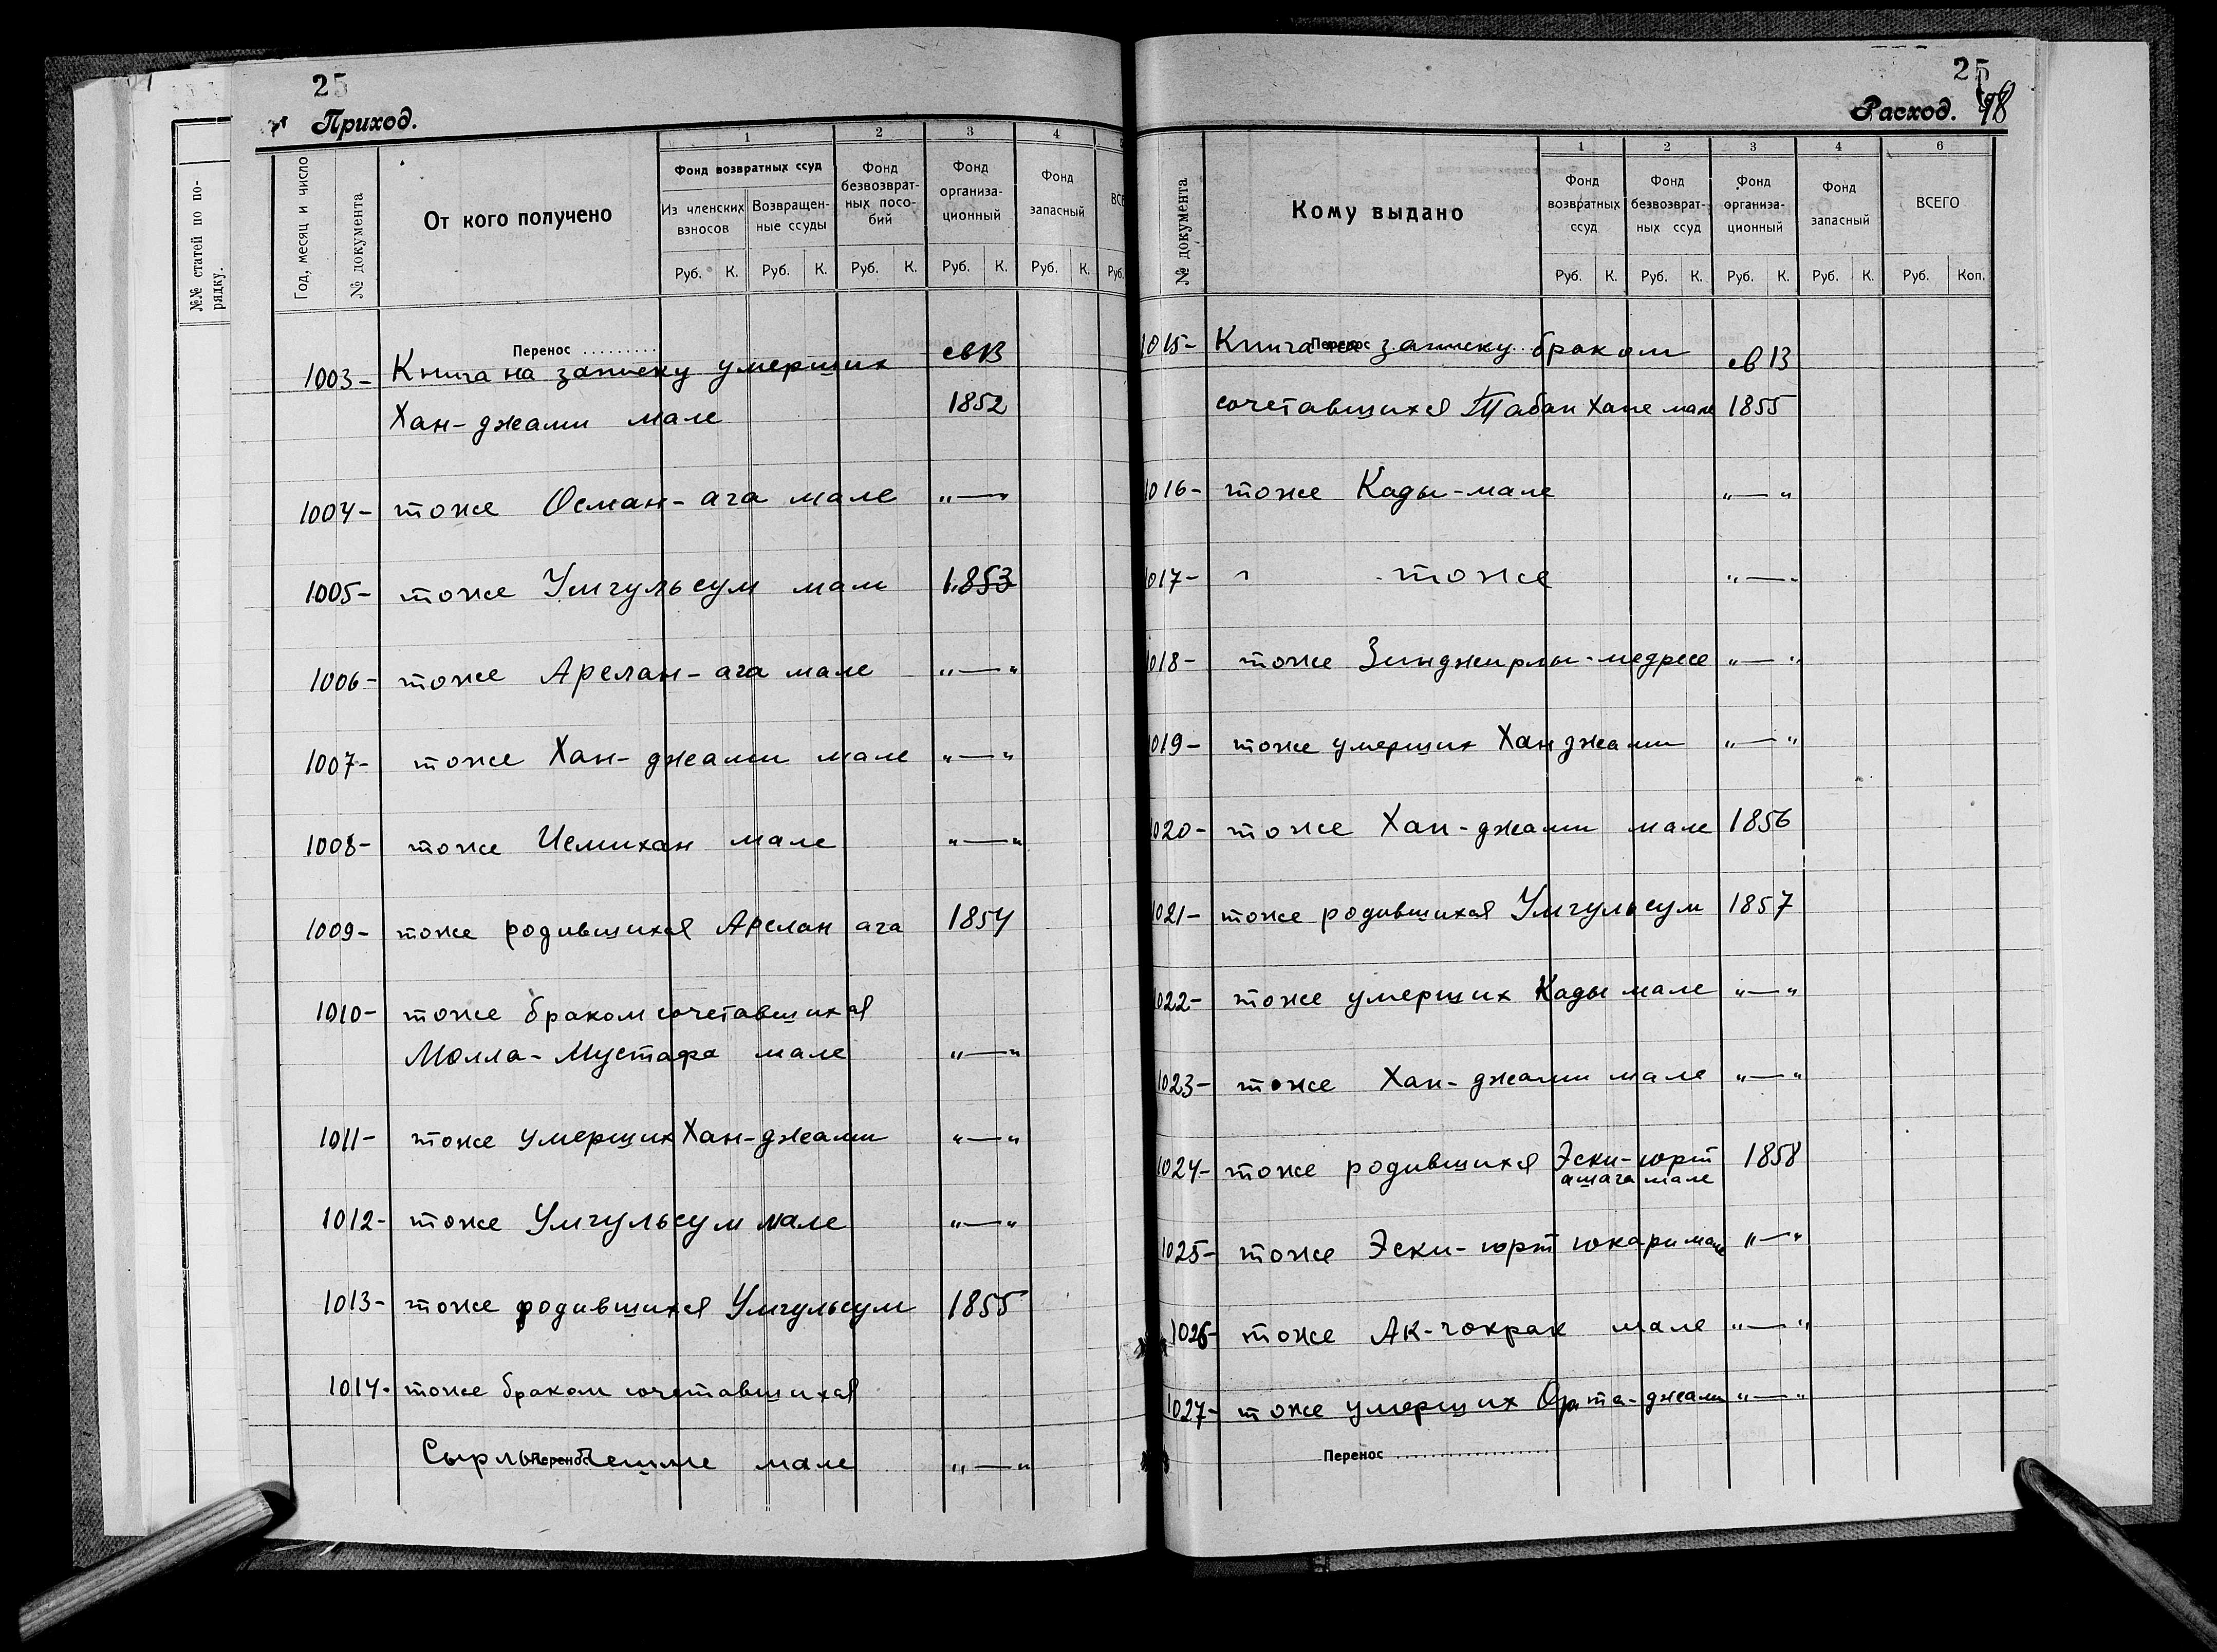 25
Приход.
№№ статей по по-
рядку.
Год, месяц и число
№ документа
От кого получено
1
Фонд возвратных ссуд
Из членских взносов
Возвращен-
ные ссуды
2
Фонд
безвозврат-
ных посо-
бий
3
Фонд
организа-
ционный
4
Фонд
запасный
Руб. К. Руб. К. Руб. К. Руб. К. Руб. К. Руб.
Перенос
1003- Книга на записку умерших
Хан-джами мале 1852
1004- тоже Осман-ага мале "—"
1005- тоже Умгульсум мале 1853
1006- тоже Арслан-ага мале "—"
1007- тоже Хан-джами мале "—"
1008- тоже Исмихан мале "—"
1009- тоже родившихся Арслан ага 1854
1010- тоже браком сочетавшихся
Молла-Мустафа мале "—"
1011- тоже умерших Хан-джами "—"
1012- тоже Умгульсум мале "—"
1013- тоже родившихся Умгульсум 1855
1014- тоже браком сочетавшихся
Сырлы Чешме мале "—"
Перенос
25
Расход. 98
№ документа
Кому выдано
1
Фонд
возвратных
ссуд
2
Фонд
безвозврат-
ных ссуд
3
Фонд
организа-
ционный
4
Фонд
запасный
6
ВСЕГО
Руб. К. Руб. К. Руб. К. Руб. К. Руб. Коп.
Перенос
1015- Книга на записку браком
сочетавшихся Табан Хане мале 1855
1016- тоже Кады-мале "—"
1017- тоже "—"
1018- тоже Зинджирлы-медресе "—"
1019- тоже умерших Хан джами "—"
1020- тоже Хан-джами мале 1856
1021- тоже родившихся Умгульсум 1857
1022- тоже умерших Кады мале "—"
1023- тоже Хан-джами мале "—"
1024- тоже родившихся Эски-юрт 1858
ашага мале
1025- тоже Эски-юрт юкари мале "—"
1026- тоже Ак-чокрак мале "—"
1027- тоже умерших Орта-джами "—"
Перенос